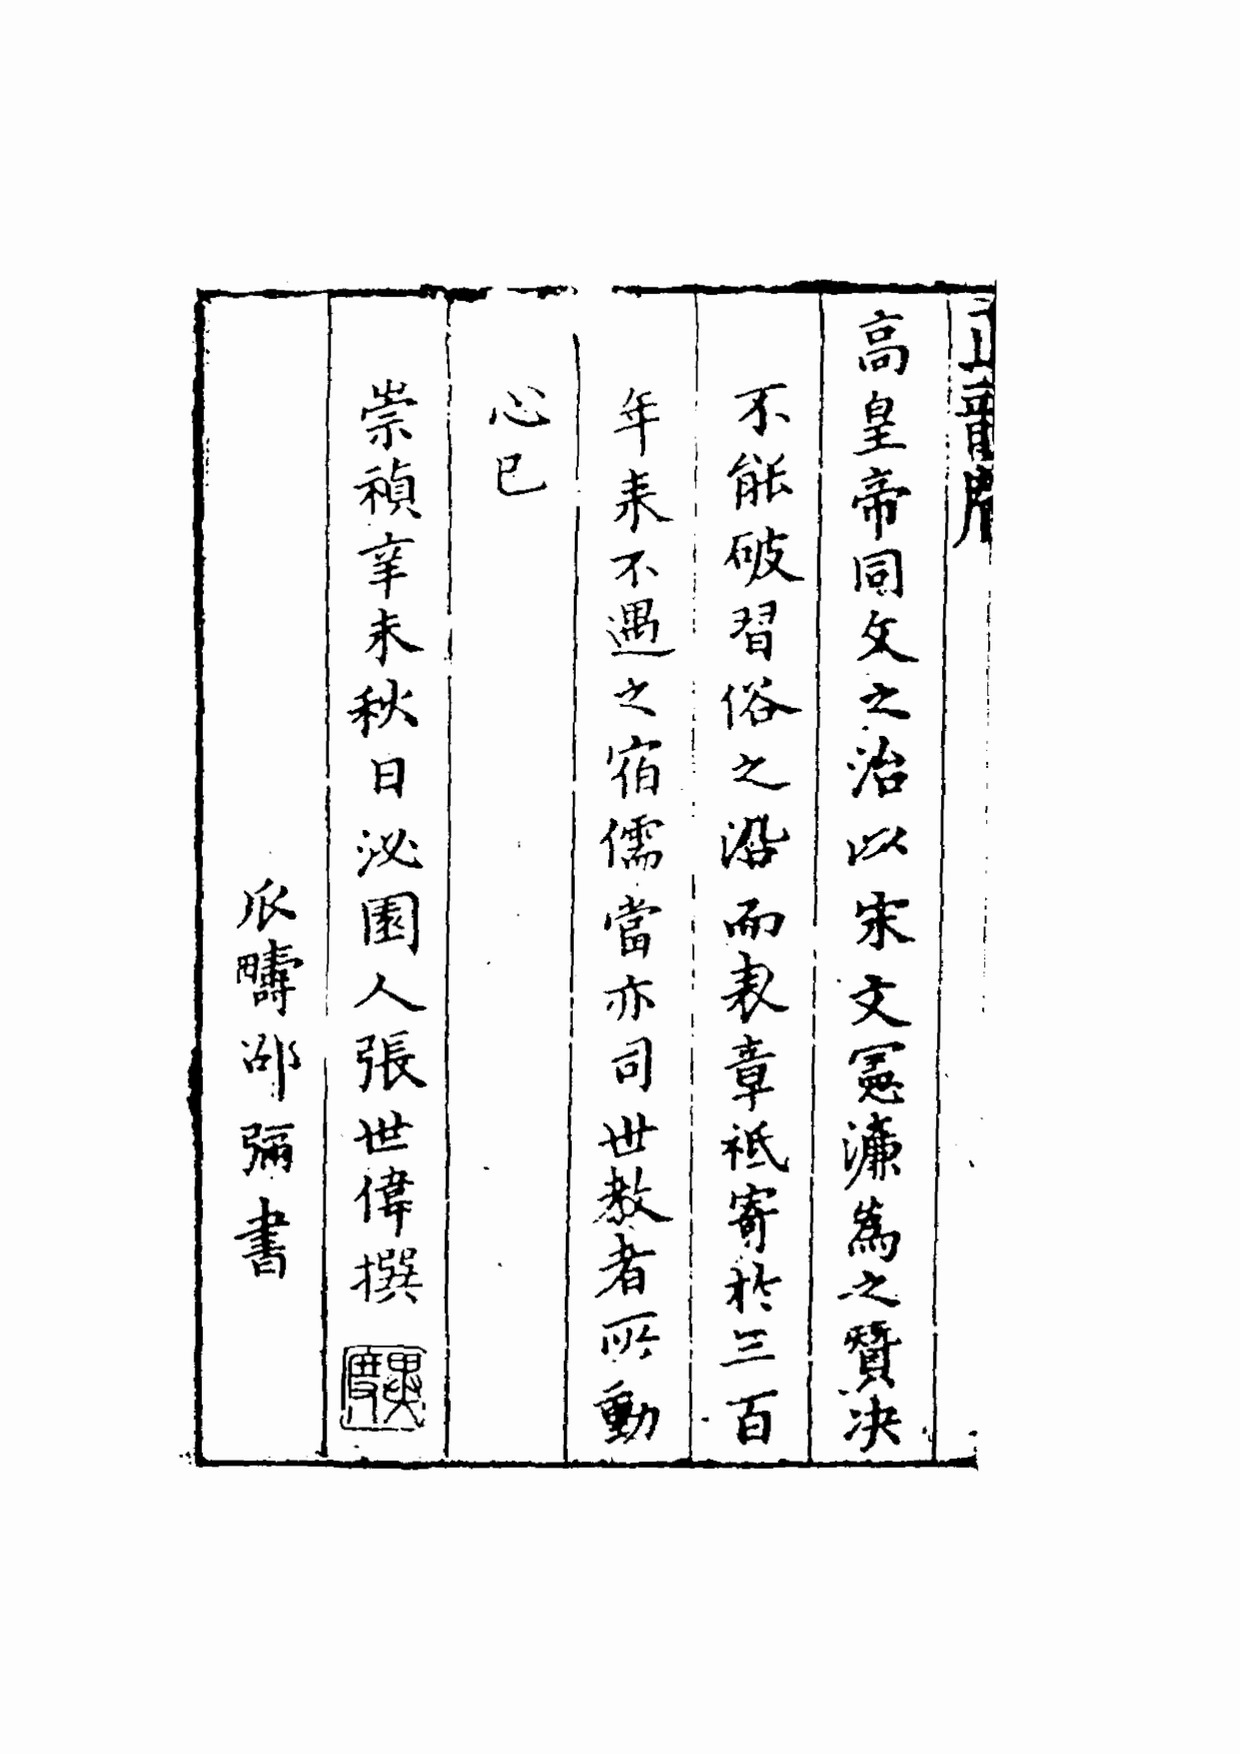 高皇帝同文之治以宋文憲濂為之贊決
不能破習俗之沿而表章祗寄於三百
年來不遇之宿儒當亦司世教者所動
心已
崇禎辛未秋日泌園人張世偉撰
瓜疇邵彌書